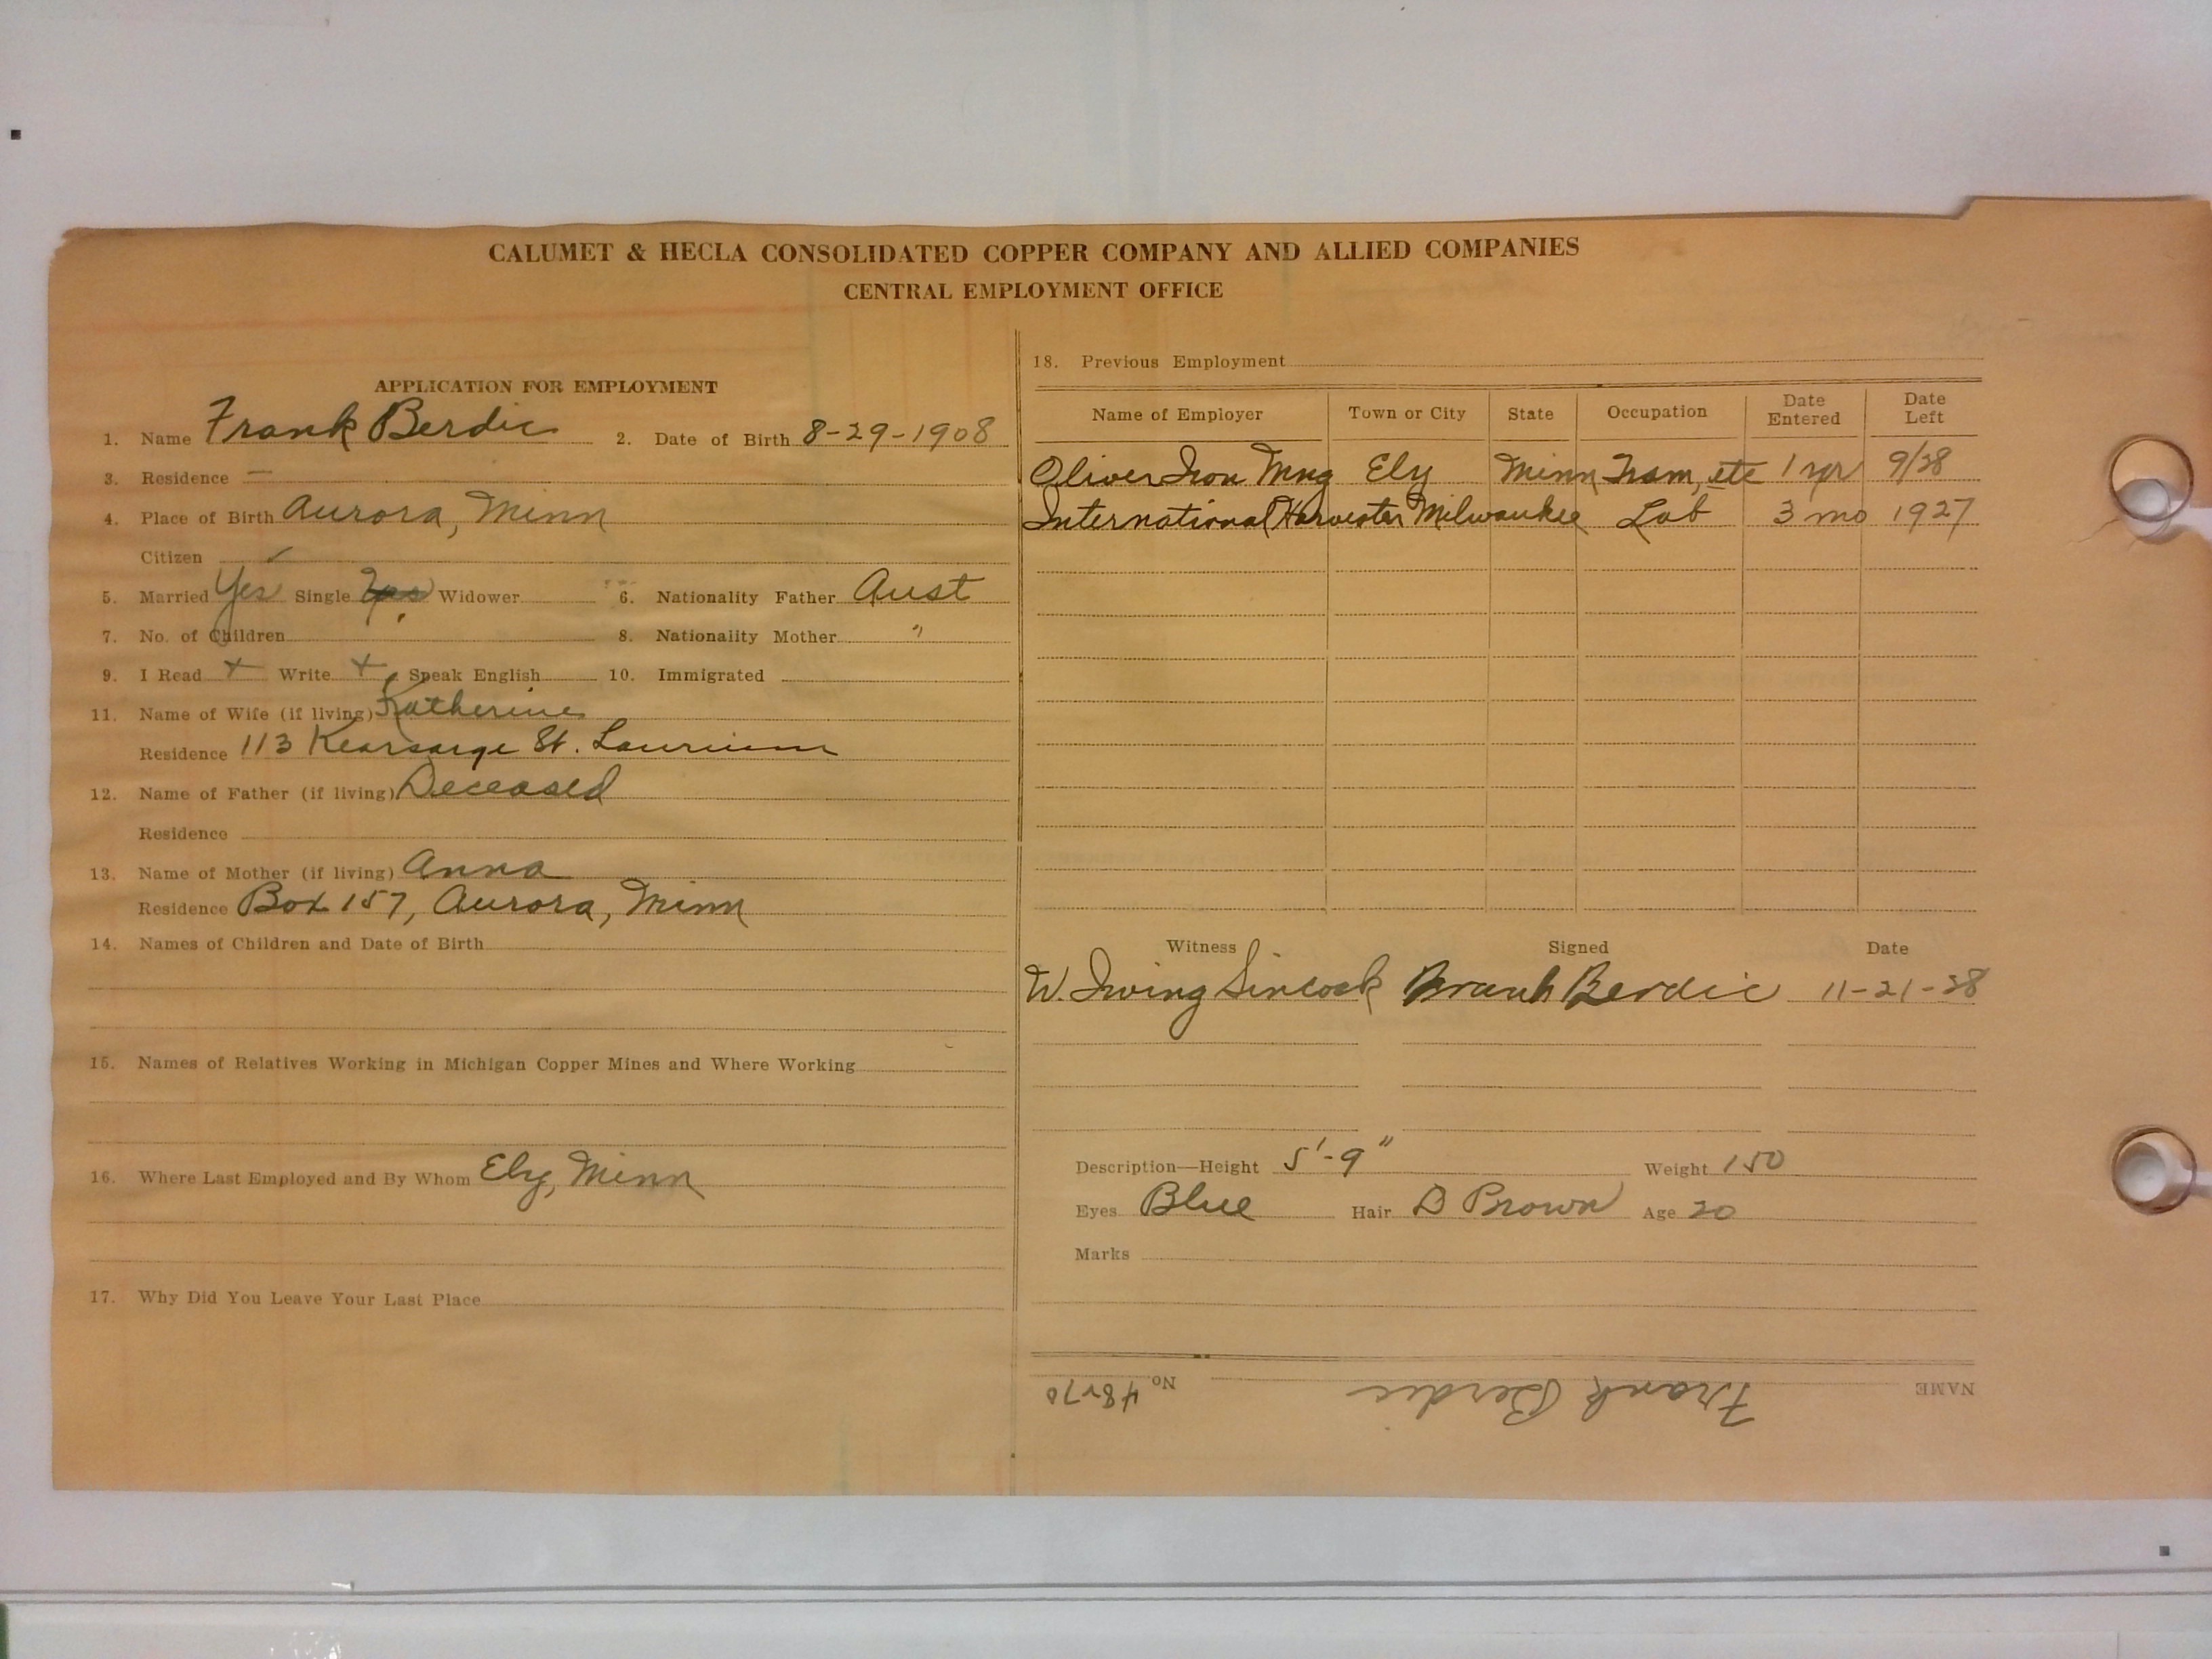 CALUMET & HECLA CONSOLIDATED COPPER COMPANY AND ALLIED COMPANIES
CENTRAL EMPLOYMENT OFFICE
APPLICATION FOR EMPLOYMENT
1. Name Frank Berdic 2. Date of Birth 8-29-1908
3. Residence —
4. Place of Birth Aurora, Minn
Citizen ✓
5. Married Yes Single Yes Widower 6. Nationality Father Aust
7. No. of Children 8. Nationality Mother "
9. I Read + Write + Speak English 10. Immigrated
11. Name of Wife (if living) Katherine
Residence 113 Kearsarge St. Laurium
12. Name of Father (if living) Deceased
Residence
13. Name of Mother (if living) Anna
Residence Box 157, Aurora, Minn
14. Names of Children and Date of Birth
15. Names of Relatives Working in Michigan Copper Mines and Where Working
16. Where Last Employed and By Whom Ely, Minn
17. Why Did You Leave Your Last Place
18. Previous Employment
Name of Employer Town or City State Occupation Date Entered Date Left
Oliver Iron Mng Ely Minn Tram, etc 1 yr 9/28
International Harvester Milwaukee Lab 3 mo 1927
Witness Signed Date
W. Irving Sincock Frank Berdic 11-21-28
Description—Height 5'-9" Weight 150
Eyes Blue Hair D Brown Age 20
Marks
NAME Frank Berdic No.